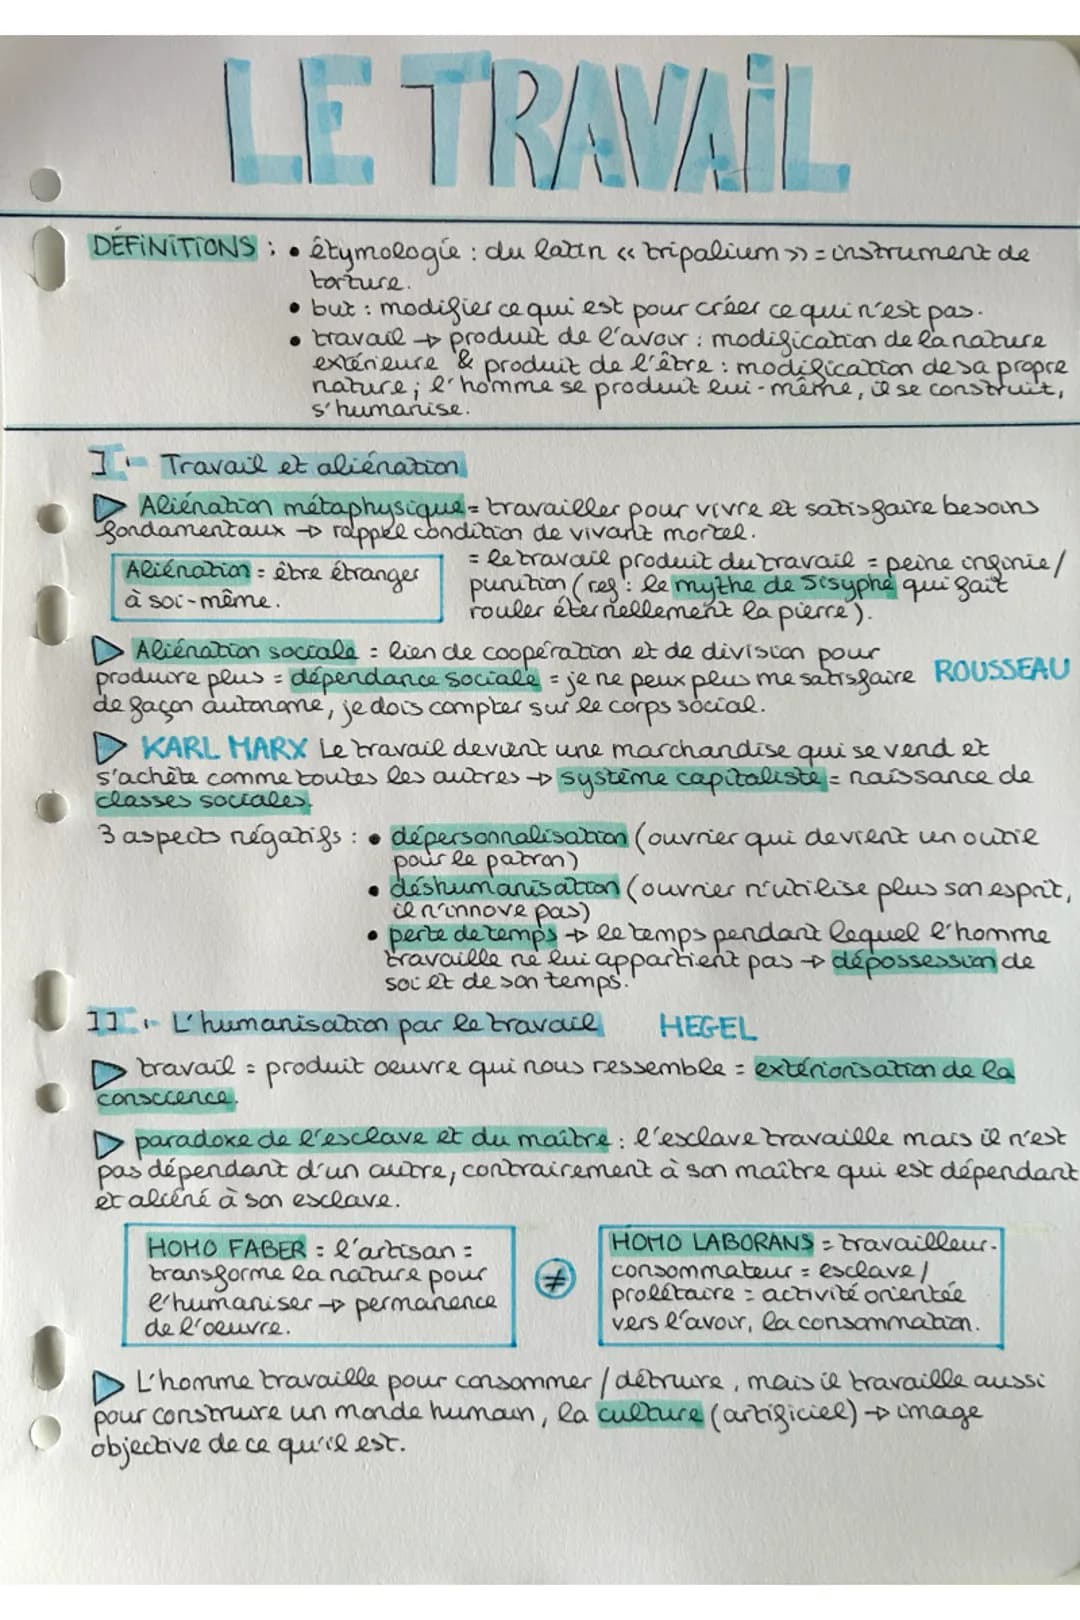 LE TRAVAIL
DÉFINITIONS : • étymologie : du latin « tripalium » = instrument de
torture.
• but : modifier ce qui est pour créer ce qui n'est pas.
• travail → produit de l'avoir : modification de la nature
extérieure & produit de l'être : modification de sa propre
nature ; l'homme se produit lui-même, il se construit,
s'humanise.
I - Travail et aliénation
▷ Aliénation métaphysique = travailler pour vivre et satisfaire besoins
fondamentaux → rappel condition de vivant mortel.
Aliénation = être étranger
à soi-même.
= le travail produit du travail = peine infinie /
punition (ref : le mythe de Sisyphe qui fait
rouler éternellement la pierre).
▷ Aliénation sociale = lien de coopération et de division pour
produire plus = dépendance sociale = je ne peux plus me satisfaire ROUSSEAU
de façon autonome, je dois compter sur le corps social.
▷ KARL MARX Le travail devient une marchandise qui se vend et
s'achète comme toutes les autres → système capitaliste = naissance de
classes sociales.
3 aspects négatifs : • dépersonnalisation (ouvrier qui devient un outil
pour le patron)
• déshumanisation (ouvrier n'utilise plus son esprit,
il n'innove pas)
• perte de temps → le temps pendant lequel l'homme
travaille ne lui appartient pas → dépossession de
soi et de son temps.
II - L'humanisation par le travail HEGEL
▷ travail = produit oeuvre qui nous ressemble = extériorisation de la
conscience.
▷ paradoxe de l'esclave et du maître : l'esclave travaille mais il n'est
pas dépendant d'un autre, contrairement à son maître qui est dépendant
et aliéné à son esclave.
HOMO FABER = l'artisan =
transforme la nature pour
l'humaniser → permanence
de l'oeuvre.
≠
HOMO LABORANS = travailleur-
consommateur = esclave /
prolétaire = activité orientée
vers l'avoir, la consommation.
▷ L'homme travaille pour consommer / détruire, mais il travaille aussi
pour construire un monde humain, la culture (artificiel) → image
objective de ce qu'il est.